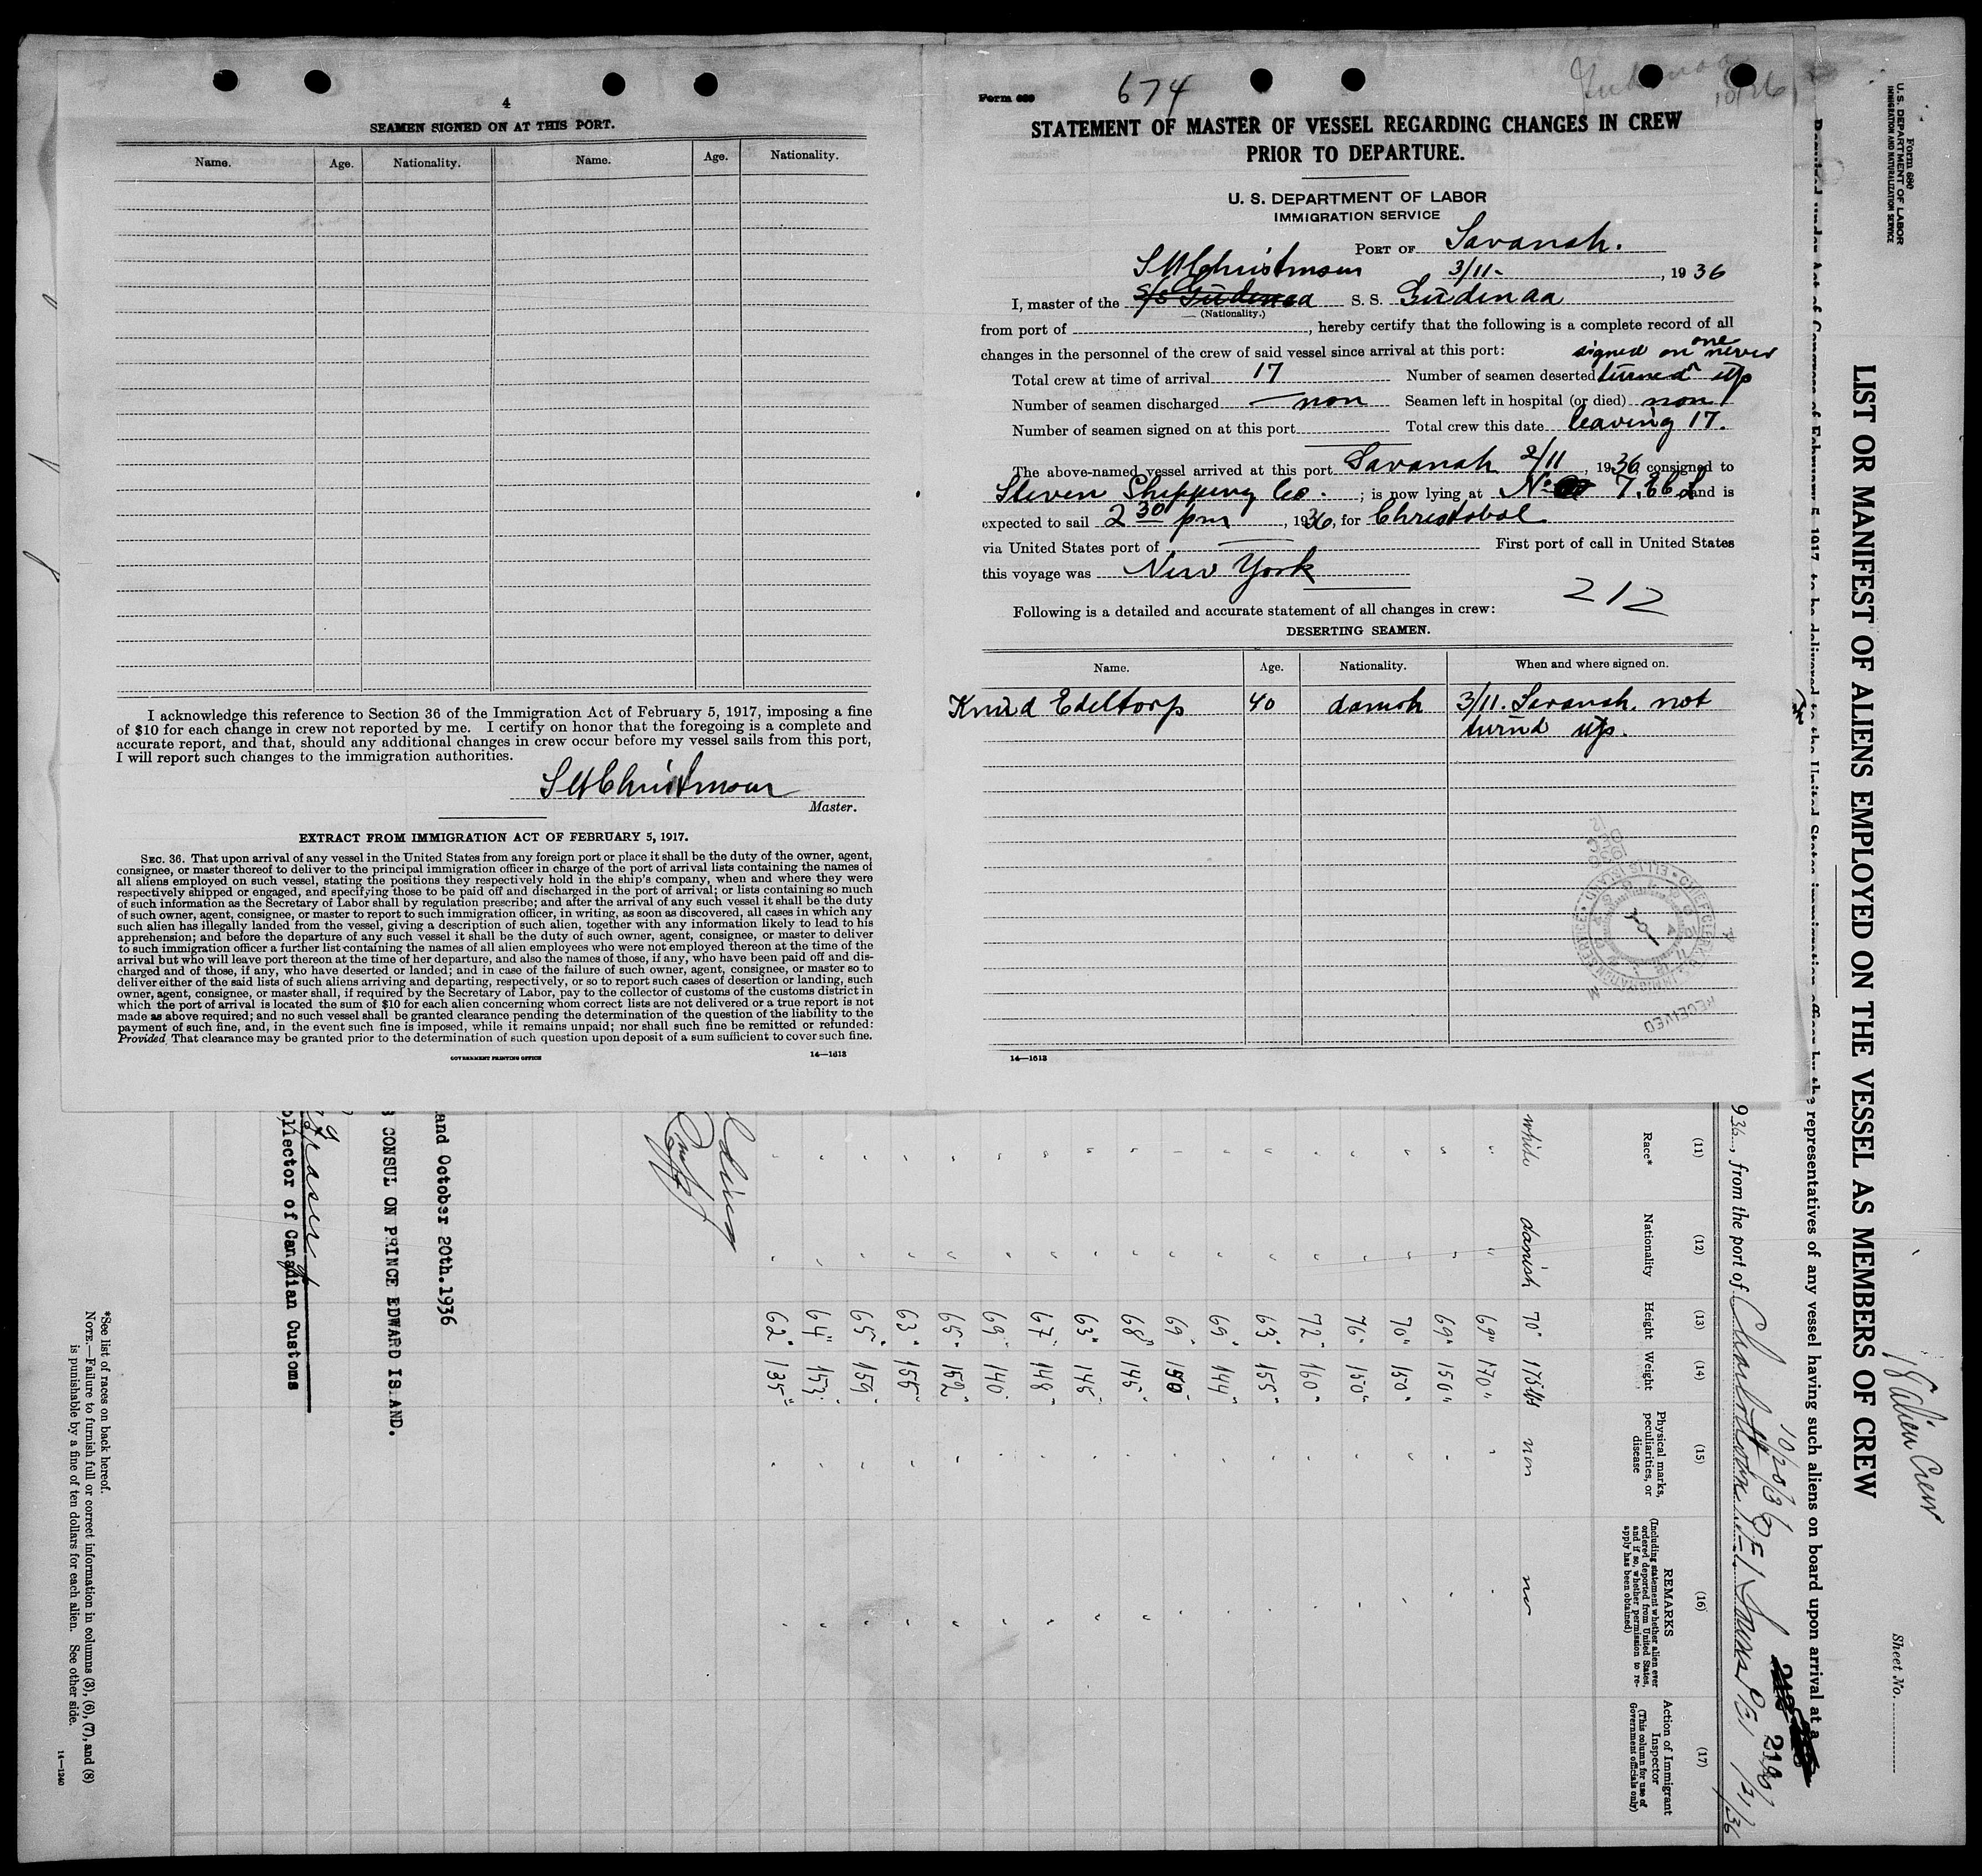 4
SEAMEN SIGNED ON AT THIS PORT.
Name. Age. Nationality. Name. Age. Nationality.
I acknowledge this reference to Section 36 of the Immigration Act of February 5, 1917, imposing a fine
of $10 for each change in crew not reported by me. I certify on honor that the foregoing is a complete and
accurate report, and that, should any additional changes in crew occur before my vessel sails from this port,
I will report such changes to the immigration authorities.
Master.
EXTRACT FROM IMMIGRATION ACT OF FEBRUARY 5, 1917.
SEC. 36. That upon arrival of any vessel in the United States from any foreign port or place it shall be the duty of the owner, agent,
consignee, or master thereof to deliver to the principal immigration officer in charge of the port of arrival lists containing the names of
all aliens employed on such vessel, stating the positions they respectively hold in the ship's company, when and where they were
respectively shipped or engaged, and specifying those to be paid off and discharged in the port of arrival; or lists containing so much
of such information as the Secretary of Labor shall by regulation prescribe; and after the arrival of any such vessel it shall be the duty
of such owner, agent, consignee, or master to report to such immigration officer, in writing, as soon as discovered, all cases in which any
such alien has illegally landed from the vessel, giving a description of such alien, together with any information likely to lead to his
apprehension; and before the departure of any such vessel it shall be the duty of such owner, agent, consignee, or master to deliver
to such immigration officer a further list containing the names of all alien employees who were not employed thereon at the time of the
arrival but who will leave port thereon at the time of her departure, and also the names of those, if any, who have been paid off and dis-
charged and of those, if any, who have deserted or landed; and in case of the failure of such owner, agent, consignee, or master so to
deliver either of the said lists of such aliens arriving and departing, respectively, or so to report such cases of desertion or landing, such
owner, agent, consignee, or master shall, if required by the Secretary of Labor, pay to the collector of customs of the customs district in
which the port of arrival is located the sum of $10 for each alien concerning whom correct lists are not delivered or a true report is not
made as above required; and no such vessel shall be granted clearance pending the determination of the question of the liability to the
payment of such fine, and, in the event such fine is imposed, while it remains unpaid; nor shall such fine be remitted or refunded:
Provided, That clearance may be granted prior to the determination of such question upon deposit of a sum sufficient to cover such fine.
GOVERNMENT PRINTING OFFICE 14—1613
Form 680 674
STATEMENT OF MASTER OF VESSEL REGARDING CHANGES IN CREW
PRIOR TO DEPARTURE.
U. S. DEPARTMENT OF LABOR
IMMIGRATION SERVICE
PORT OF Savanah.
3/11- , 1936
I, master of the S/S Gudenaa S. S. Gudenaa
(Nationality.)
from port of , hereby certify that the following is a complete record of all
changes in the personnel of the crew of said vessel since arrival at this port:
Total crew at time of arrival 17 Number of seamen deserted signed on one never turned up
Number of seamen discharged — non Seamen left in hospital (or died) non
Number of seamen signed on at this port Total crew this date leaving 17.
The above-named vessel arrived at this port Savanah 2/11, 1936, consigned to
Shipping Co. ; is now lying at and is
expected to sail 2 30 pm , 1936, for Christobal
via United States port of First port of call in United States
this voyage was New York
212
Following is a detailed and accurate statement of all changes in crew:
DESERTING SEAMEN.
Name. Age. Nationality. When and where signed on.
Knud Edeltorp 40 danish 3/11. Savanah. not
turnd up.
RECEIVED
14—1613
Form 680
U. S. DEPARTMENT OF LABOR
IMMIGRATION AND NATURALIZATION SERVICE
18 alien Crew
Sheet No.
LIST OR MANIFEST OF ALIENS EMPLOYED ON THE VESSEL AS MEMBERS OF CREW
representatives of any vessel having such aliens on board upon arrival at a
10/20/36
2196
936, from the port of Charlottetown P.E.I.
(11) (12) (13) (14) (15) (16) (17)
Race* Nationality Height Weight Physical marks, peculiarities, or disease REMARKS (Including statement whether alien ever ordered deported from United States, and if so, whether permission to reapply has been obtained) Action of Immigrant Inspector (This column for use of Government officials only)
white danish 70" 175 lbs non no
" " 69" 170" " "
" " 69" 150" " "
" " 70" 150" " "
" " 76" 150" " "
" " 72" 160" " "
" " 63" 155" " "
" " 69" 144" " "
" " 69" 150" " "
" " 68" 145" " "
" " 63" 145" " "
" " 67" 148" " "
" " 69" 140" " "
" " 65" 152" " "
" " 63" 155" " "
" " 65" 159" " "
" " 64" 153" " "
" " 62" 135" " "
and October 20th.1936
CONSUL ON PRINCE EDWARD ISLAND.
ollector of Canadian Customs
*See list of races on back hereof.
NOTE.—Failure to furnish full or correct information in columns (3), (6), (7), and (8)
is punishable by a fine of ten dollars for each alien. See other side.
14—1240